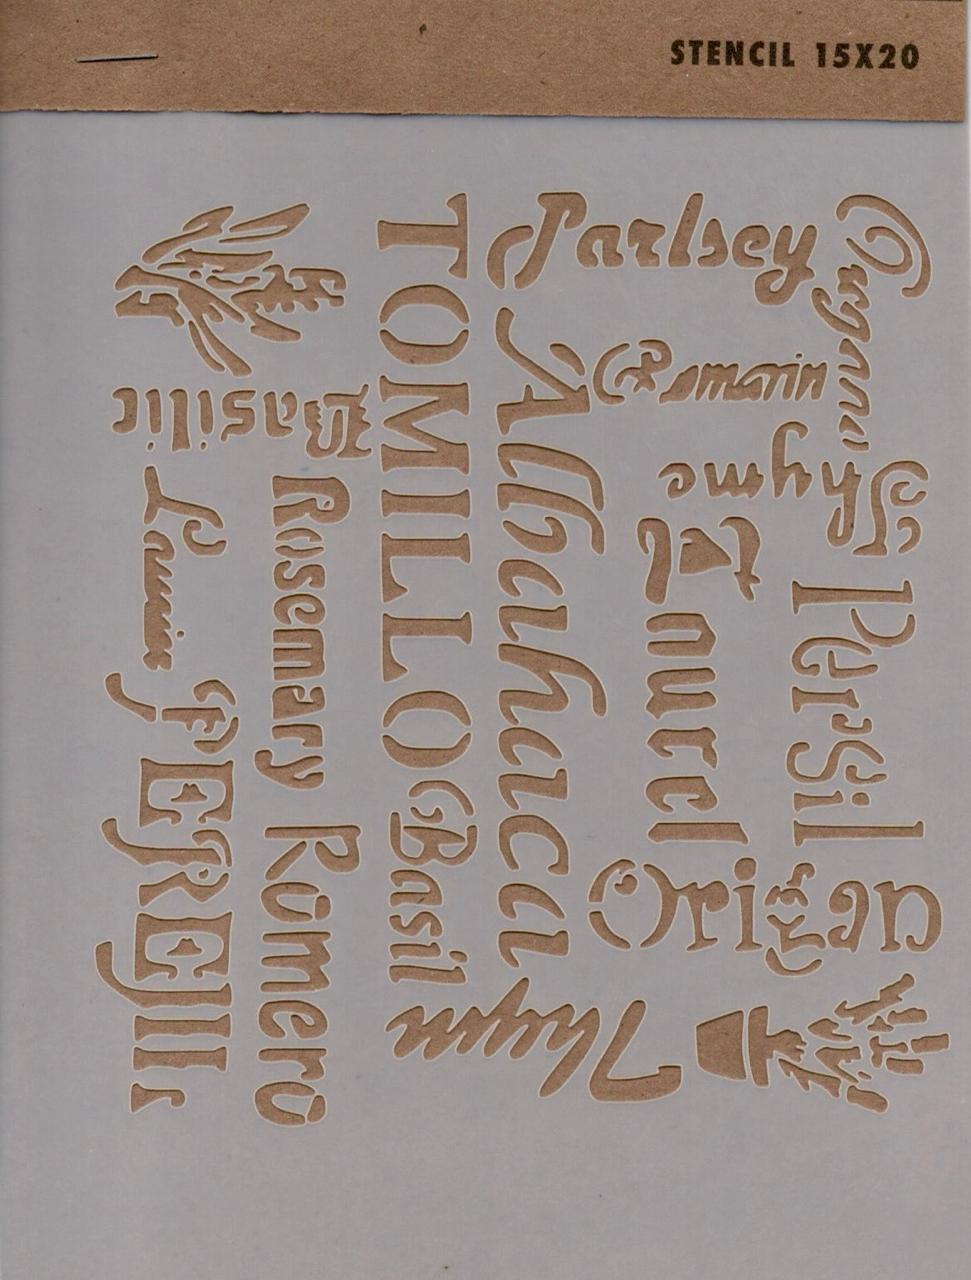 STENCIL 15X20
Parlsey
Oregano
Romarin
Thyme
Persil
Laurel
Origan
Albahaca
TOMILLO
Basil
Thym
Basilic
Rosemary
Romero
Laurier
PEREJIL